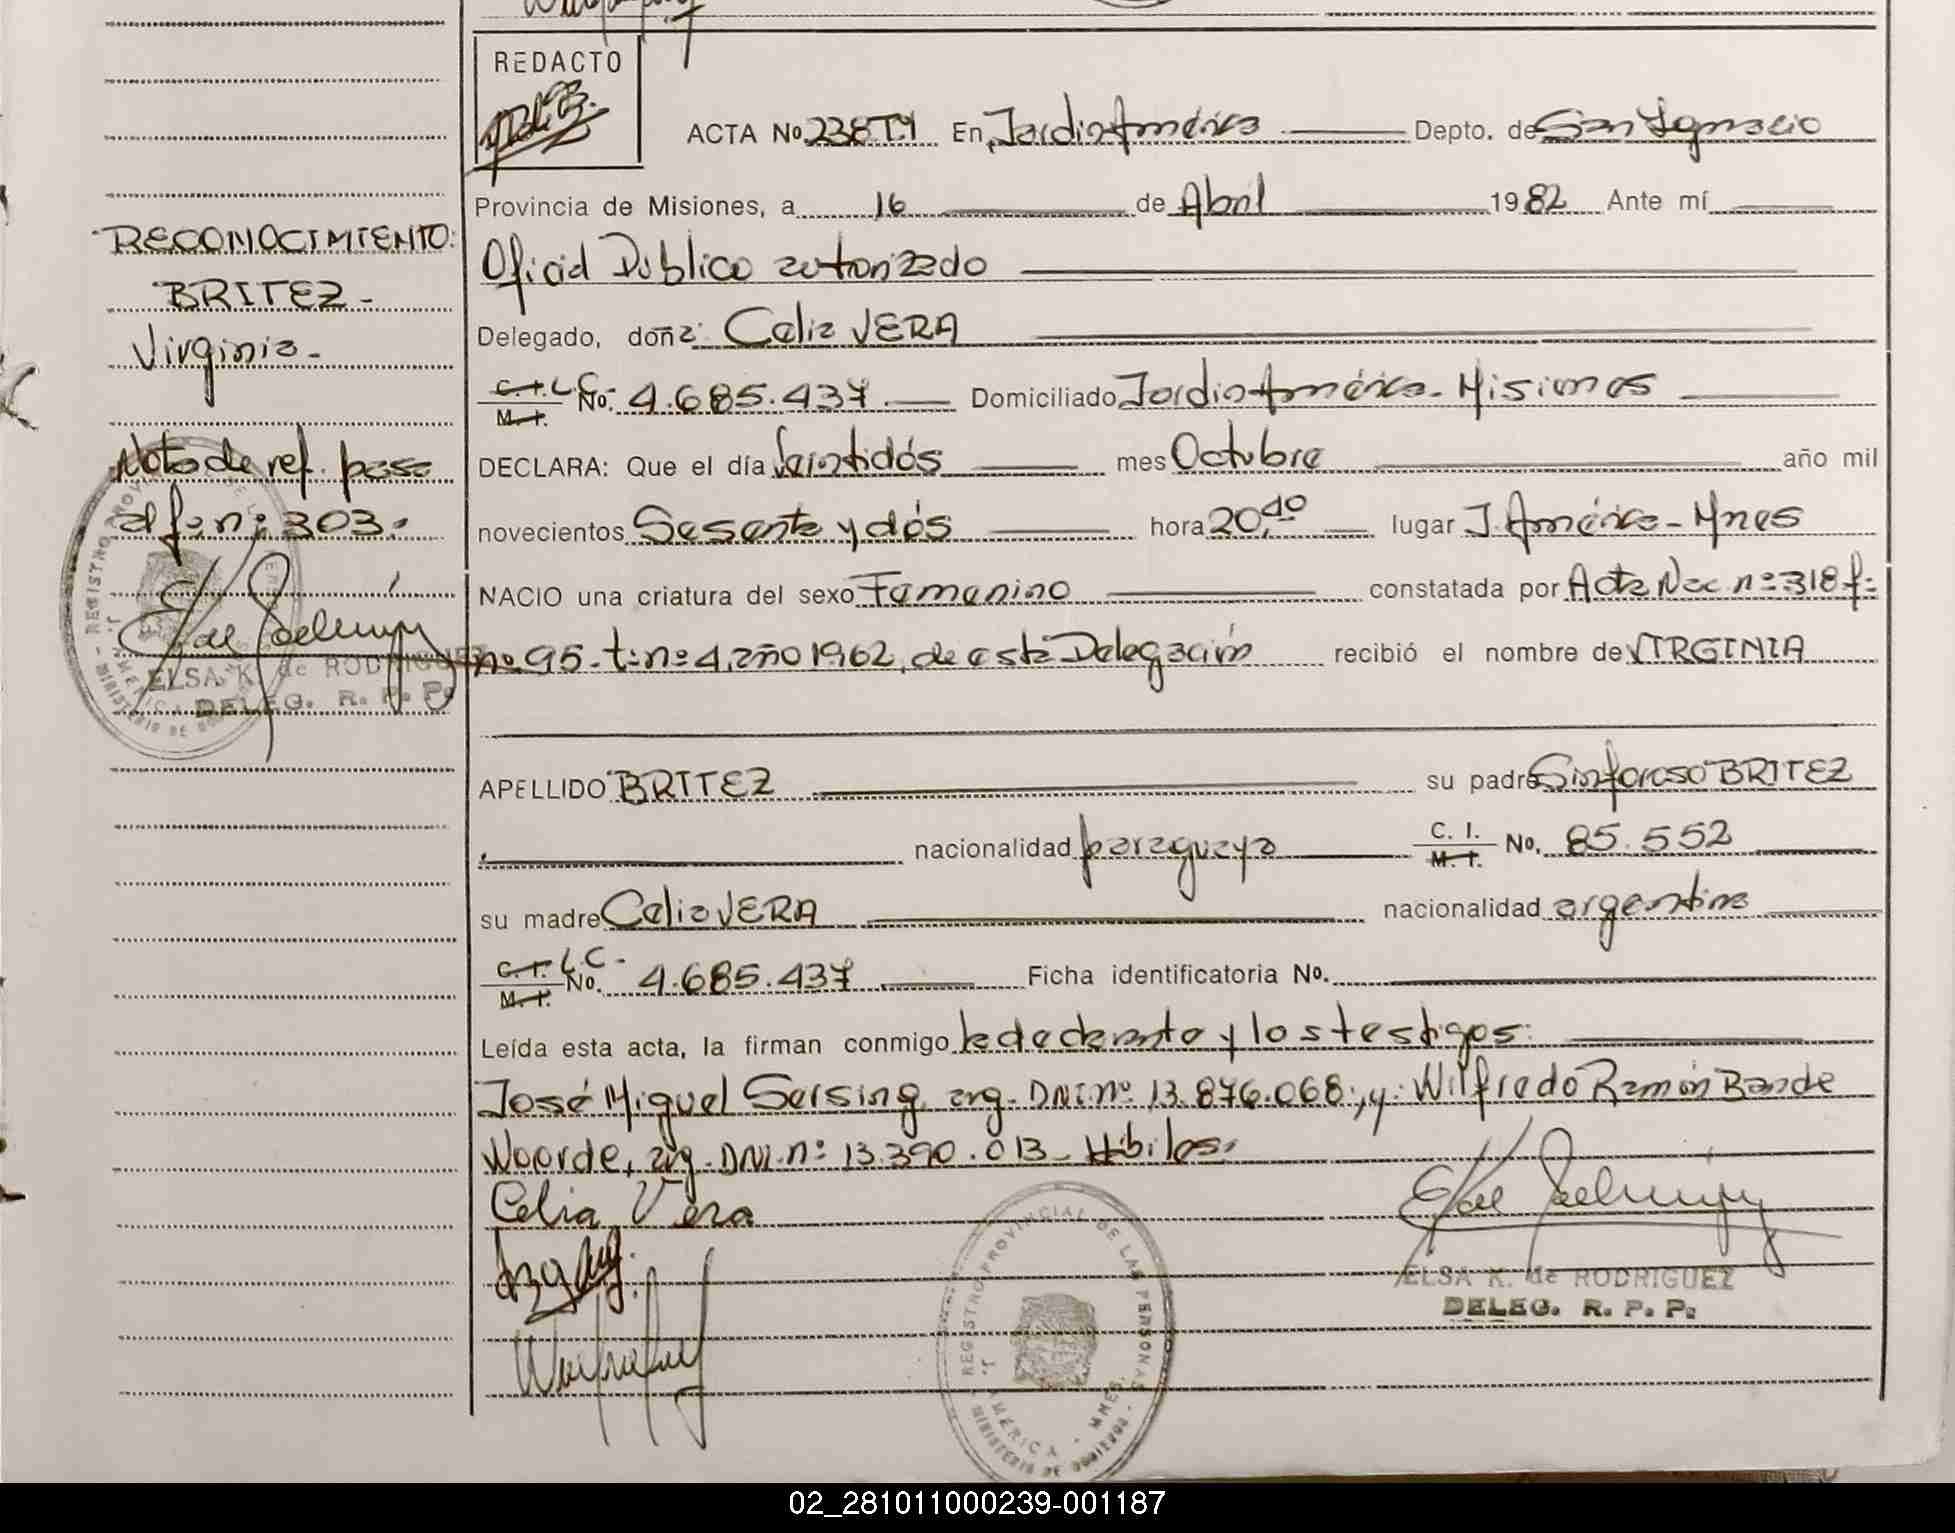 REDACTO
ACTA No 238 T.1 En Jardin América Depto. de San Ignacio
Provincia de Misiones, a 16 de Abril 1982 Ante mí
Oficial Publico autorizado
Delegado, doña: Celia VERA
C.I. L.C. No. 4.685.437 Domiciliado Jardin América - Misiones
M.I.
DECLARA: Que el día Veintidós mes Octubre año mil
novecientos Sesenta y dós hora 20,40 lugar J. América - Mnes
NACIO una criatura del sexo Femenino constatada por Acta Nac. nº 318 fº
nº 95 - tº nº 4, año 1962, de esta Delegación recibió el nombre de VIRGINIA
APELLIDO BRITEZ su padre Sinforoso BRITEZ
nacionalidad paraguaya C. I. No. 85.552
M. I.
su madre Celia VERA nacionalidad argentina
C.I. L.C. - No. 4.685.437 Ficha identificatoria No.
M.I.
Leída esta acta, la firman conmigo la declarante y los testigos:
José Miguel Sersing, arg. DNI. nº 13.876.068; y: Wilfredo Ramón Bande
Woorde, arg. DNI. nº 13.390.013 - Hábiles.
Celia Vera
ELSA K. de RODRIGUEZ
DELEG. R. P. P.
REGISTRO PROVINCIAL DE LAS PERSONAS
J. AMERICA - MNES.
MINISTERIO DE GOBIERNO
RECONOCIMIENTO:
BRITEZ -
Virginia -
Nota de ref. pasa
al fº nº 303.
ELSA K. de RODRIGUEZ
DELEG. R. P. P.
02_281011000239-001187